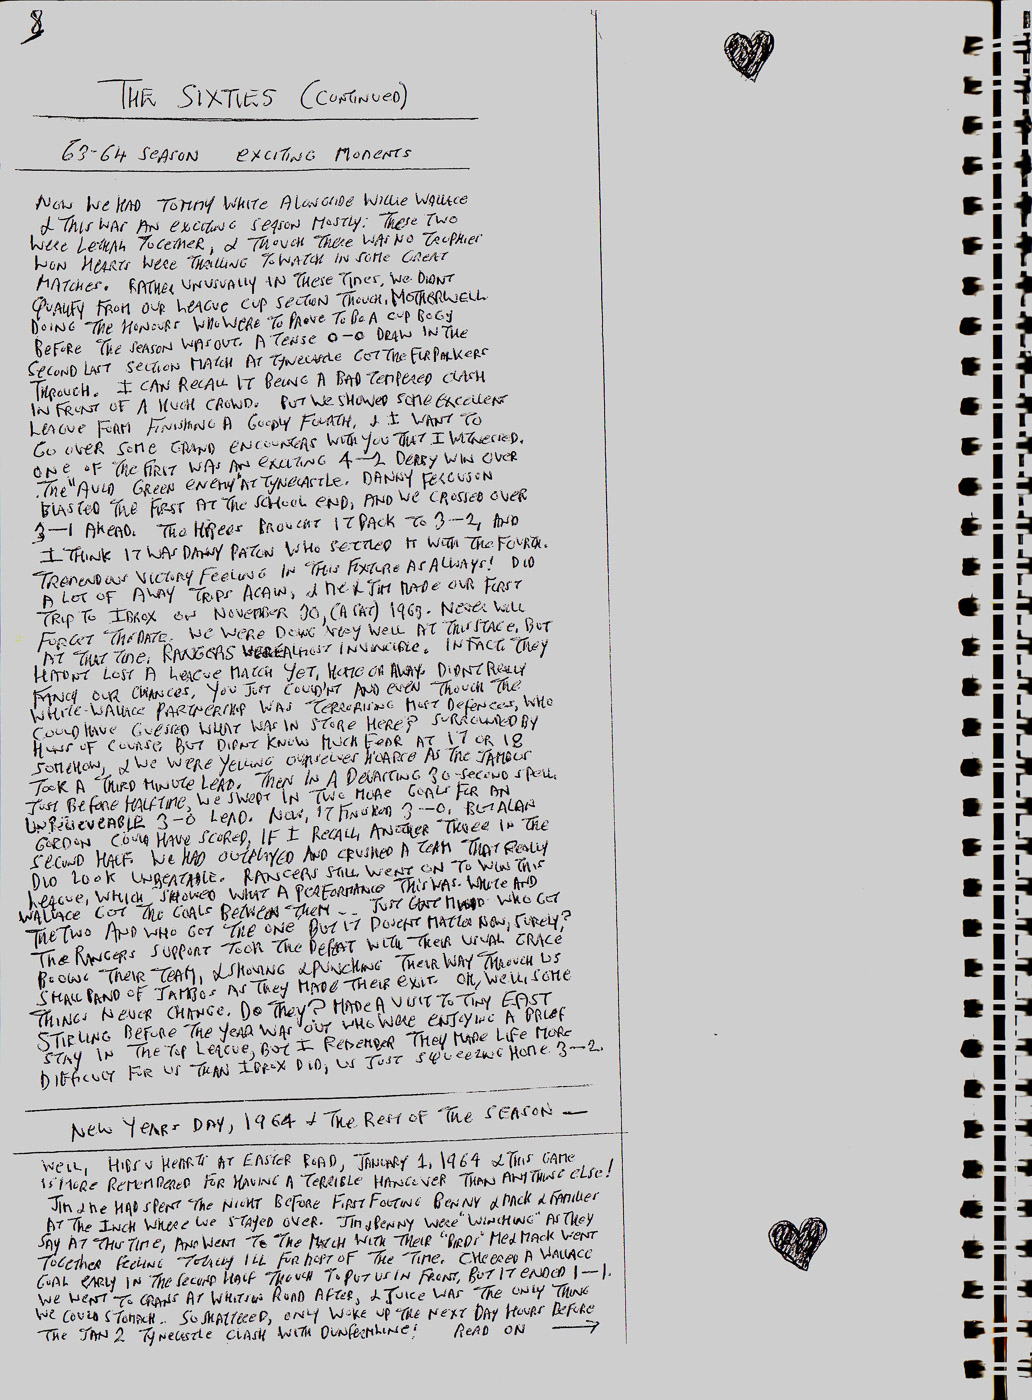 8
THE SIXTIES (CONTINUED)
63-64 SEASON EXCITING MOMENTS
NOW WE HAD TOMMY WHITE ALONGSIDE WILLIE WALLACE
& THIS WAS AN EXCITING SEASON MOSTLY. THESE TWO
WERE LETHAL TOGETHER, & THOUGH THERE WAS NO TROPHIES
WON HEARTS WERE THRILLING TO WATCH IN SOME GREAT
MATCHES. RATHER UNUSUALLY IN THESE TIMES, WE DIDNT
QUALIFY FROM OUR LEAGUE CUP SECTION THOUGH, MOTHERWELL
DOING THE HONOURS WHO WERE TO PROVE TO BE A CUP BOGY
BEFORE THE SEASON WAS OUT. A TENSE 0-0 DRAW IN THE
SECOND LAST SECTION MATCH AT TYNECASTLE GOT THE FIR PARKERS
THROUGH. I CAN RECALL IT BEING A BAD TEMPERED CLASH
IN FRONT OF A HUGH CROWD. BUT WE SHOWED SOME EXCELLENT
LEAGUE FORM FINISHING A GOODLY FOURTH, & I WANT TO
GO OVER SOME GRAND ENCOUNTERS WITH YOU THAT I WITNESSED.
ONE OF THE FIRST WAS AN EXCITING 4-2 DERBY WIN OVER
THE "AULD GREEN ENEMY" AT TYNECASTLE. DANNY FERGUSON
BLASTED THE FIRST AT THE SCHOOL END, AND WE CROSSED OVER
3-1 AHEAD. THE HIBEES BROUGHT IT BACK TO 3-2, AND
I THINK IT WAS DANNY PATON WHO SETTLED IT WITH THE FOURTH.
TREMENDOUS VICTORY FEELING IN THIS FIXTURE AS ALWAYS! DID
A LOT OF AWAY TRIPS AGAIN, & ME & JIM MADE OUR FIRST
TRIP TO IBROX ON NOVEMBER 30, (A SAT) 1963. NEVER WILL
FORGET THE DATE. WE WERE DOING VERY WELL AT THIS STAGE, BUT
AT THAT TIME, RANGERS WERE ALMOST INVINCIBLE. IN FACT THEY
HADNT LOST A LEAGUE MATCH YET, HOME OR AWAY. DIDNT REALLY
FANCY OUR CHANCES, YOU JUST COULDNT AND EVEN THOUGH THE
WHITE-WALLACE PARTNERSHIP WAS TERRORISING MOST DEFENCES, WHO
COULD HAVE GUESSED WHAT WAS IN STORE HERE? SURROUNDED BY
HUNS OF COURSE BUT DIDNT KNOW MUCH FEAR AT 17 OR 18
SOMEHOW, & WE WERE YELLING OURSELVES HOARSE AS THE JAMBOS
TOOK A THIRD MINUTE LEAD. THEN IN A DEVASTING 30-SECOND SPELL
JUST BEFORE HALFTIME, WE SWEPT IN TWO MORE GOALS FOR AN
UNBELIEVEABLE 3-0 LEAD. NOW, IT FINISHED 3-0, BUT ALAN
GORDON COULD HAVE SCORED, IF I RECALL, ANOTHER THREE IN THE
SECOND HALF. WE HAD OUTPLAYED AND CRUSHED A TEAM THAT REALLY
DID LOOK UNBEATABLE. RANGERS STILL WENT ON TO WIN THIS
LEAGUE, WHICH SHOWED WHAT A PERFORMANCE THIS WAS. WHITE AND
WALLACE GOT THE GOALS BETWEEN THEM -- JUST CANT MIND WHO GOT
THE TWO AND WHO GOT THE ONE BUT IT DOSENT MATTER NOW, SURELY?
THE RANGERS SUPPORT TOOK THE DEFEAT WITH THEIR USUAL GRACE
BOOING THEIR TEAM, & SHOVING & PUNCHING THEIR WAY THROUGH US
SMALL BAND OF JAMBOS AS THEY MADE THEIR EXIT. OH, WELL, SOME
THINGS NEVER CHANGE. DO THEY? MADE A VISIT TO TINY EAST
STIRLING BEFORE THE YEAR WAS OUT WHO WERE ENJOYING A BRIEF
STAY IN THE TOP LEAGUE, BUT I REMEMBER THEY MADE LIFE MORE
DIFFICULT FOR US THAN IBROX DID, US JUST SQUEEZING HOME 3-2.
NEW YEARS DAY, 1964 & THE REST OF THE SEASON —
WELL, HIBS V HEARTS AT EASTER ROAD, JANUARY 1, 1964 & THIS GAME
IS MORE REMEMBERED FOR HAVING A TERRIBLE HANGOVER THAN ANYTHING ELSE!
JIM & ME HAD SPENT THE NIGHT BEFORE FIRST FOOTING BENNY & MACK & FAMILIES
AT THE INCH WHERE WE STAYED OVER. JIM & BENNY WERE "WINCHING" AS THEY
SAY AT THIS TIME, AND WENT TO THE MATCH WITH THEIR "BIRDS" ME & MACK WENT
TOGETHER FEELING TOTALLY ILL FOR MOST OF THE TIME. CHEERED A WALLACE
GOAL EARLY IN THE SECOND HALF THOUGH TO PUT US IN FRONT, BUT IT ENDED 1-1.
WE WENT TO GRANS AT WHITSON ROAD AFTER, & JUICE WAS THE ONLY THING
WE COULD STOMACH.. SO SHATTERED, ONLY WOKE UP THE NEXT DAY HOURS BEFORE
THE JAN 2 TYNECASTLE CLASH WITH DUNFERMLINE! READ ON →